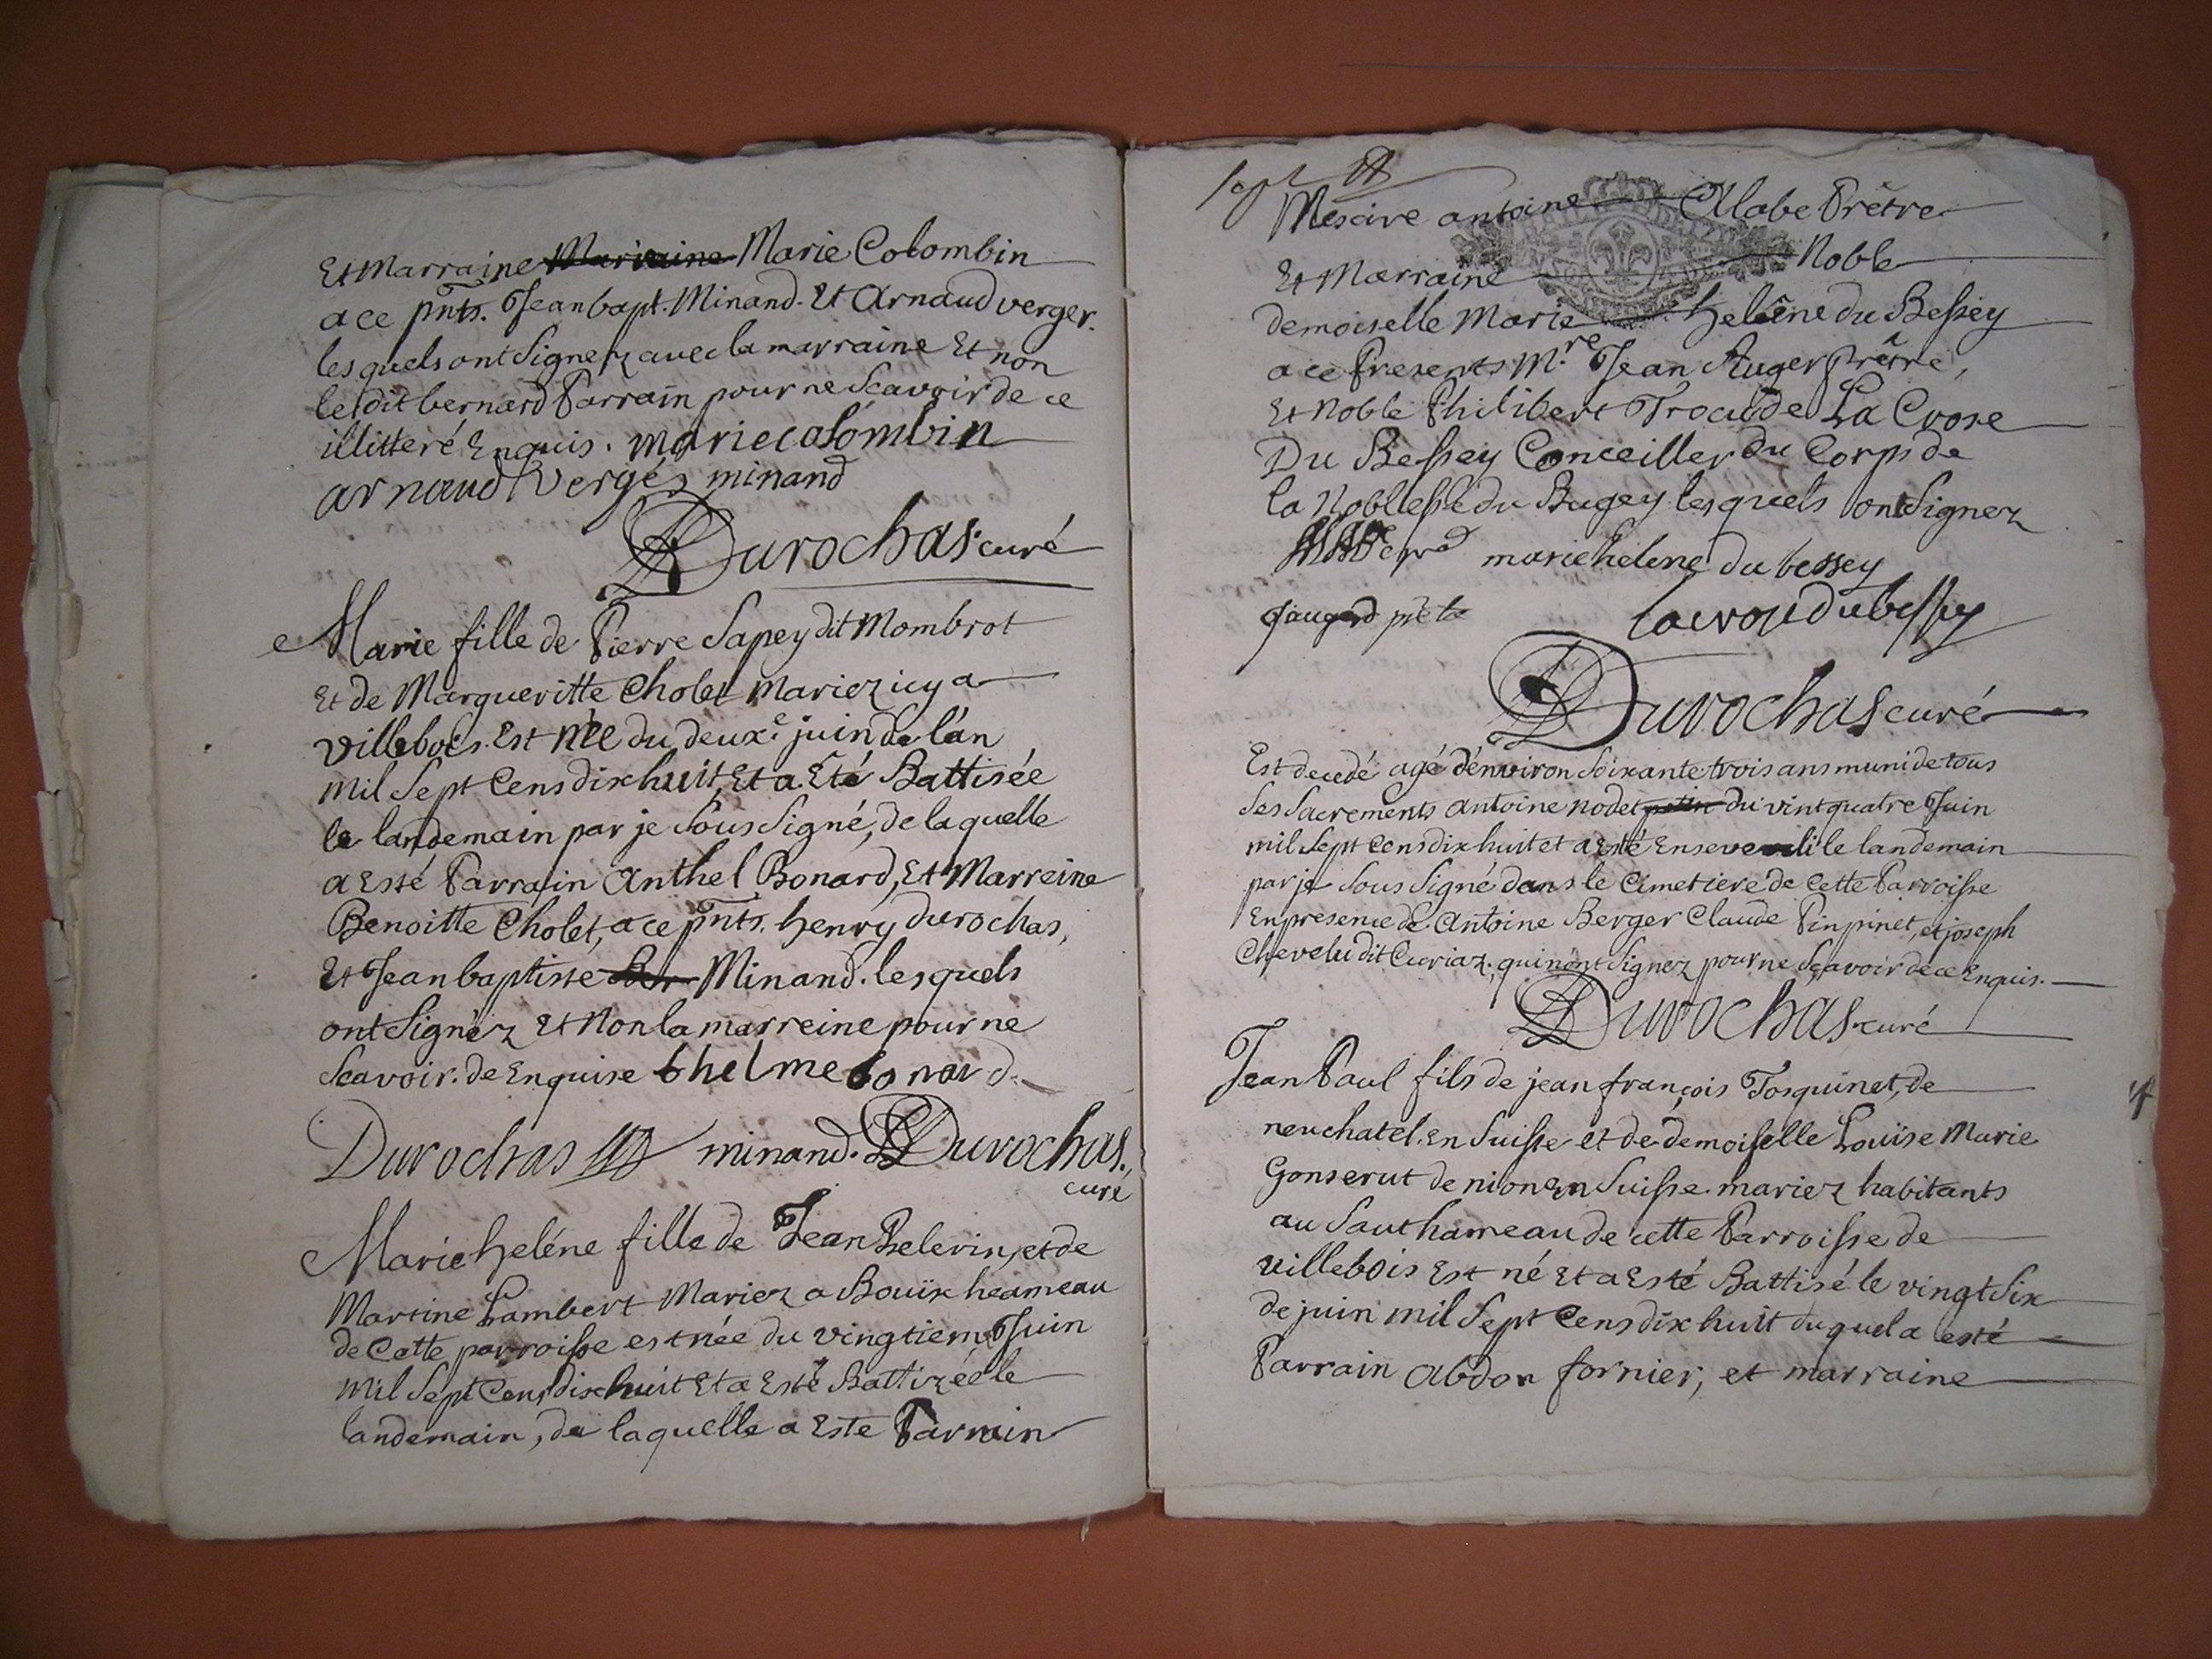 Et Marraine Marraine Marie Colombin
a ce pnts. Jean bapt. Minand. Et Arnaud verger.
lesquels ont signez avec la marraine Et non
le dit bernard Parrain pour ne scavoir de ce
illitteré Enquis. marie colombin
arnaud vergez minand
Durochas curé
Marie fille de Pierre Sapey dit Mombrot
Et de Margueritte Cholet mariez icy a
villebois. Est née du deuxe. juin de l'an
mil sept Cens dix huit, Et a Eté Battisée
le landemain par je sous signé, de laquelle
a Esté Parrain Anthel Bonard, Et Marreine
Benoitte Cholet, a ce pnts. henry durochas,
Et Jean baptiste Ber Minand. lesquels
ont signéz Et Non la marreine pour ne
scavoir. de Enquise thelme bonard.
Durochas minand. Durochas.
curé
Marie heléne fille de Jean Pelerin, et de
Martine Lambert Mariez a Bouïx heameau
de Cette parroisse est née du vingtieme Juin
mil sept Cens dix huit Et a Esté Battizée le
landemain, de laquelle a Este Parrain
sept
Messire antoine Alabe Prêtre
Et Marraine Noble
demoiselle Marie heléne du Bessey
a ce Presents Mre. Jean Auger Prêtre,
Et Noble Philibert Trocu de La Crose
Du Bessey Conceiller du Corps de
la Noblesse du Bugey lesquels ont signez
marie helene du bessey
J auger prêtre
lacroze du bessey
Durochas curé
Est decedé agé d'énviron soixante trois ans muni de tous
ses sacrements antoine nodet petin du vint quatre Juin
mil sept Cens dix huit et a esté Enseveli le landemain
par je sous signé dans le Cimetiere de Cette Parroisse
En presence de Antoine Berger Claude Pinpinet, et joseph
Chevelu dit Curiaz, qui n'ont signez pour ne sçavoir de ce Enquis.
Durochas curé
Jean Paul fils de jean françois Tosquinet, de
neuchatel. en suisse et de demoiselle Louïse Marie
Gonserut de nion en suisse. mariez habitants
au Saut hameau de cette Parroisse de
villebois Est né Et a Esté Battisé le vingt six
de juin mil sept Cens dix huit duquel a esté
Parrain Abdon fornier, et marraine